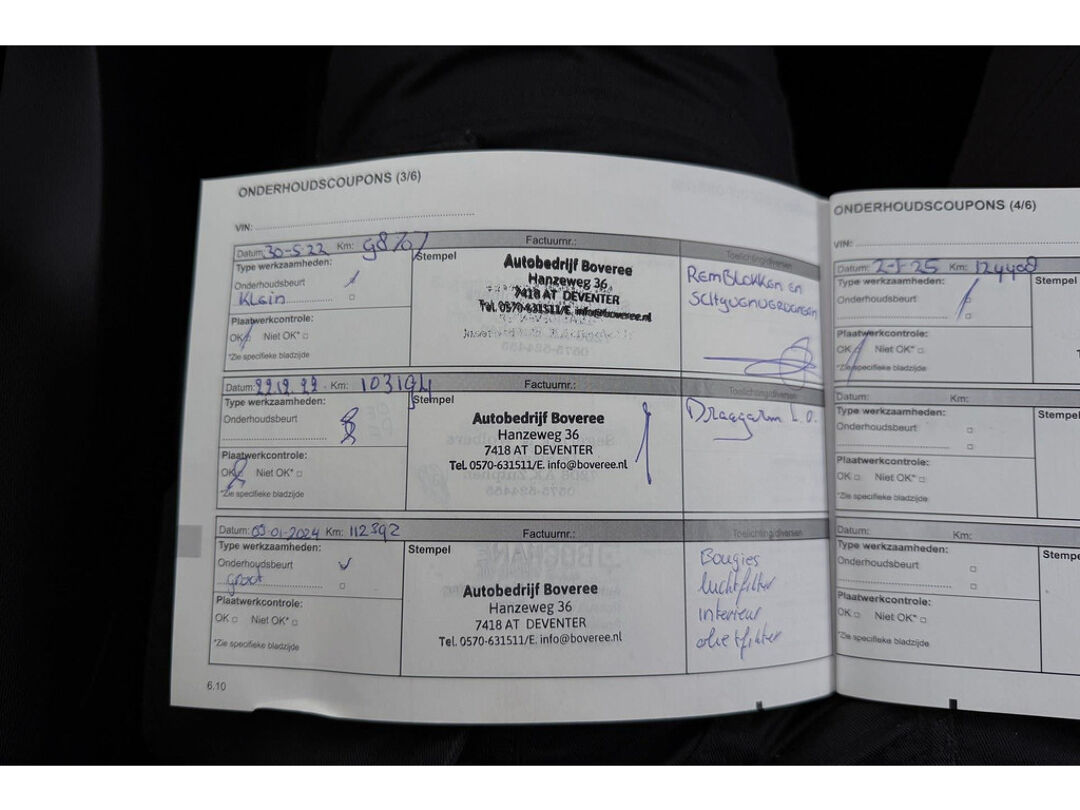 ONDERHOUDSCOUPONS (3/6)
VIN:
Datum: 30-5-22 Km: 98707 Factuurnr.: Toelichting/diversen
Type werkzaamheden:
Onderhoudsbeurt
Klein
Plaatwerkcontrole:
OK Niet OK*
*Zie specifieke bladzijde
Stempel
Autobedrijf Boveree
Hanzeweg 36
7418 AT DEVENTER
Tel. 0570-631511/E. info@boveree.nl
REMBLOKKEN EN
Datum: 22.12.22 Km: 103194 Factuurnr.: Toelichting/diversen
Type werkzaamheden:
Onderhoudsbeurt
Plaatwerkcontrole:
OK Niet OK*
*Zie specifieke bladzijde
Stempel
Autobedrijf Boveree
Hanzeweg 36
7418 AT DEVENTER
Tel. 0570-631511/E. info@boveree.nl
Draagarm L.O.
Datum: 03-01-2024 Km: 112392 Factuurnr.: Toelichting/diversen
Type werkzaamheden:
Onderhoudsbeurt
groot
Plaatwerkcontrole:
OK Niet OK*
*Zie specifieke bladzijde
Stempel
Autobedrijf Boveree
Hanzeweg 36
7418 AT DEVENTER
Tel. 0570-631511/E. info@boveree.nl
Bougies
luchtfilter
interieur
oliefilter
6.10
ONDERHOUDSCOUPONS (4/6)
VIN:
Datum: 2-1-25 Km: 124408
Type werkzaamheden:
Onderhoudsbeurt
Plaatwerkcontrole:
OK Niet OK*
*Zie specifieke bladzijde
Stempel
Datum: Km:
Type werkzaamheden:
Onderhoudsbeurt
Plaatwerkcontrole:
OK Niet OK*
*Zie specifieke bladzijde
Stempel
Datum: Km:
Type werkzaamheden:
Onderhoudsbeurt
Plaatwerkcontrole:
OK Niet OK*
*Zie specifieke bladzijde
Stempe